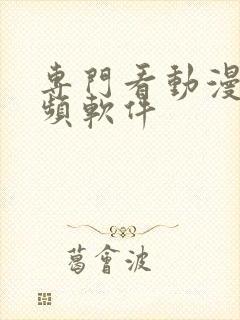 專門看動漫
頻軟件
葛會波